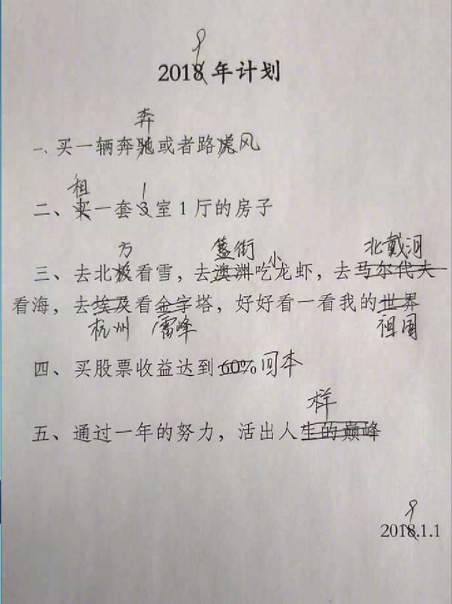 9
2018 年计划
奔
一、买一辆奔驰或者路虎风
租 1
二、买一套 3 室 1 厅的房子
方 簋街 小 北戴河
三、去北极看雪，去澳洲吃龙虾，去马尔代夫
看海，去埃及看金字塔，好好看一看我的世界
杭州 雷峰 祖国
四、买股票收益达到 60% 回本
样
五、通过一年的努力，活出人生的巅峰
9
2018.1.1